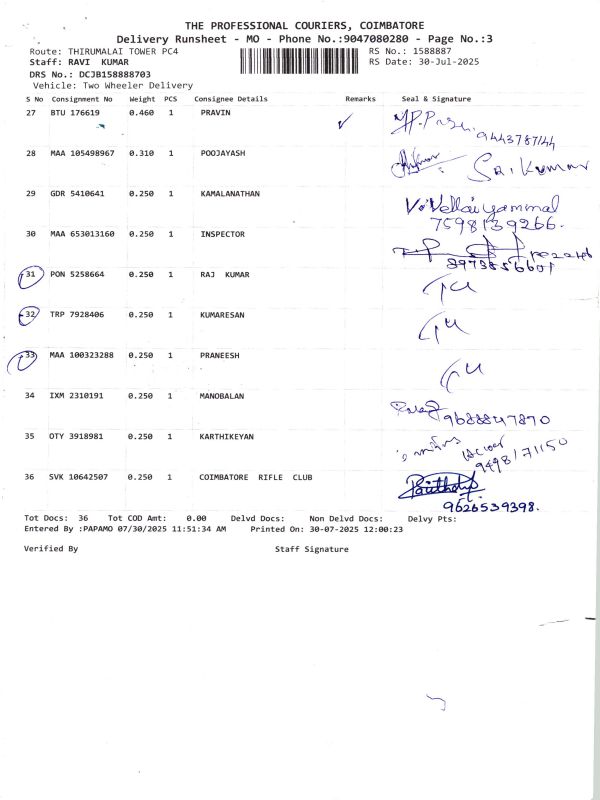 THE PROFESSIONAL COURIERS, COIMBATORE
Delivery Runsheet - MO - Phone No.:9047080280 - Page No.:3
Route: THIRUMALAI TOWER PC4 RS No.: 1588887
Staff: RAVI KUMAR RS Date: 30-Jul-2025
DRS No.: DCJB158888703
Vehicle: Two Wheeler Delivery
S No Consignment No Weight PCS Consignee Details Remarks Seal & Signature
27 BTU 176619 0.460 1 PRAVIN
9443787144
28 MAA 105498967 0.310 1 POOJAYASH SRI KUMAR
29 GDR 5410641 0.250 1 KAMALANATHAN V. Vellaiyammal
7598139266.
30 MAA 653013160 0.250 1 INSPECTOR
8973856601
31 PON 5258664 0.250 1 RAJ KUMAR
32 TRP 7928406 0.250 1 KUMARESAN
33 MAA 100323288 0.250 1 PRANEESH
34 IXM 2310191 0.250 1 MANOBALAN
9688847870
35 OTY 3918981 0.250 1 KARTHIKEYAN
9498171150
36 SVK 10642507 0.250 1 COIMBATORE RIFLE CLUB
9626539398.
Tot Docs: 36 Tot COD Amt: 0.00 Delvd Docs: Non Delvd Docs: Delvy Pts:
Entered By :PAPAMO 07/30/2025 11:51:34 AM Printed On: 30-07-2025 12:00:23
Verified By Staff Signature